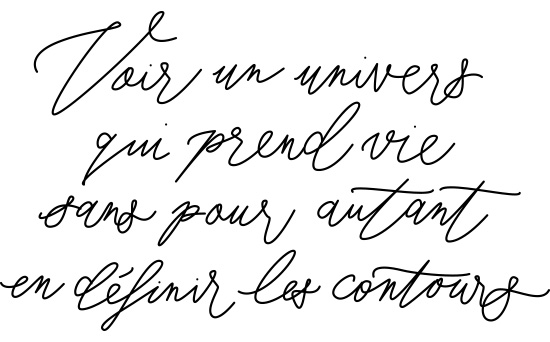 Voir un univers
qui prend vie
sans pour autant
en définir les contours